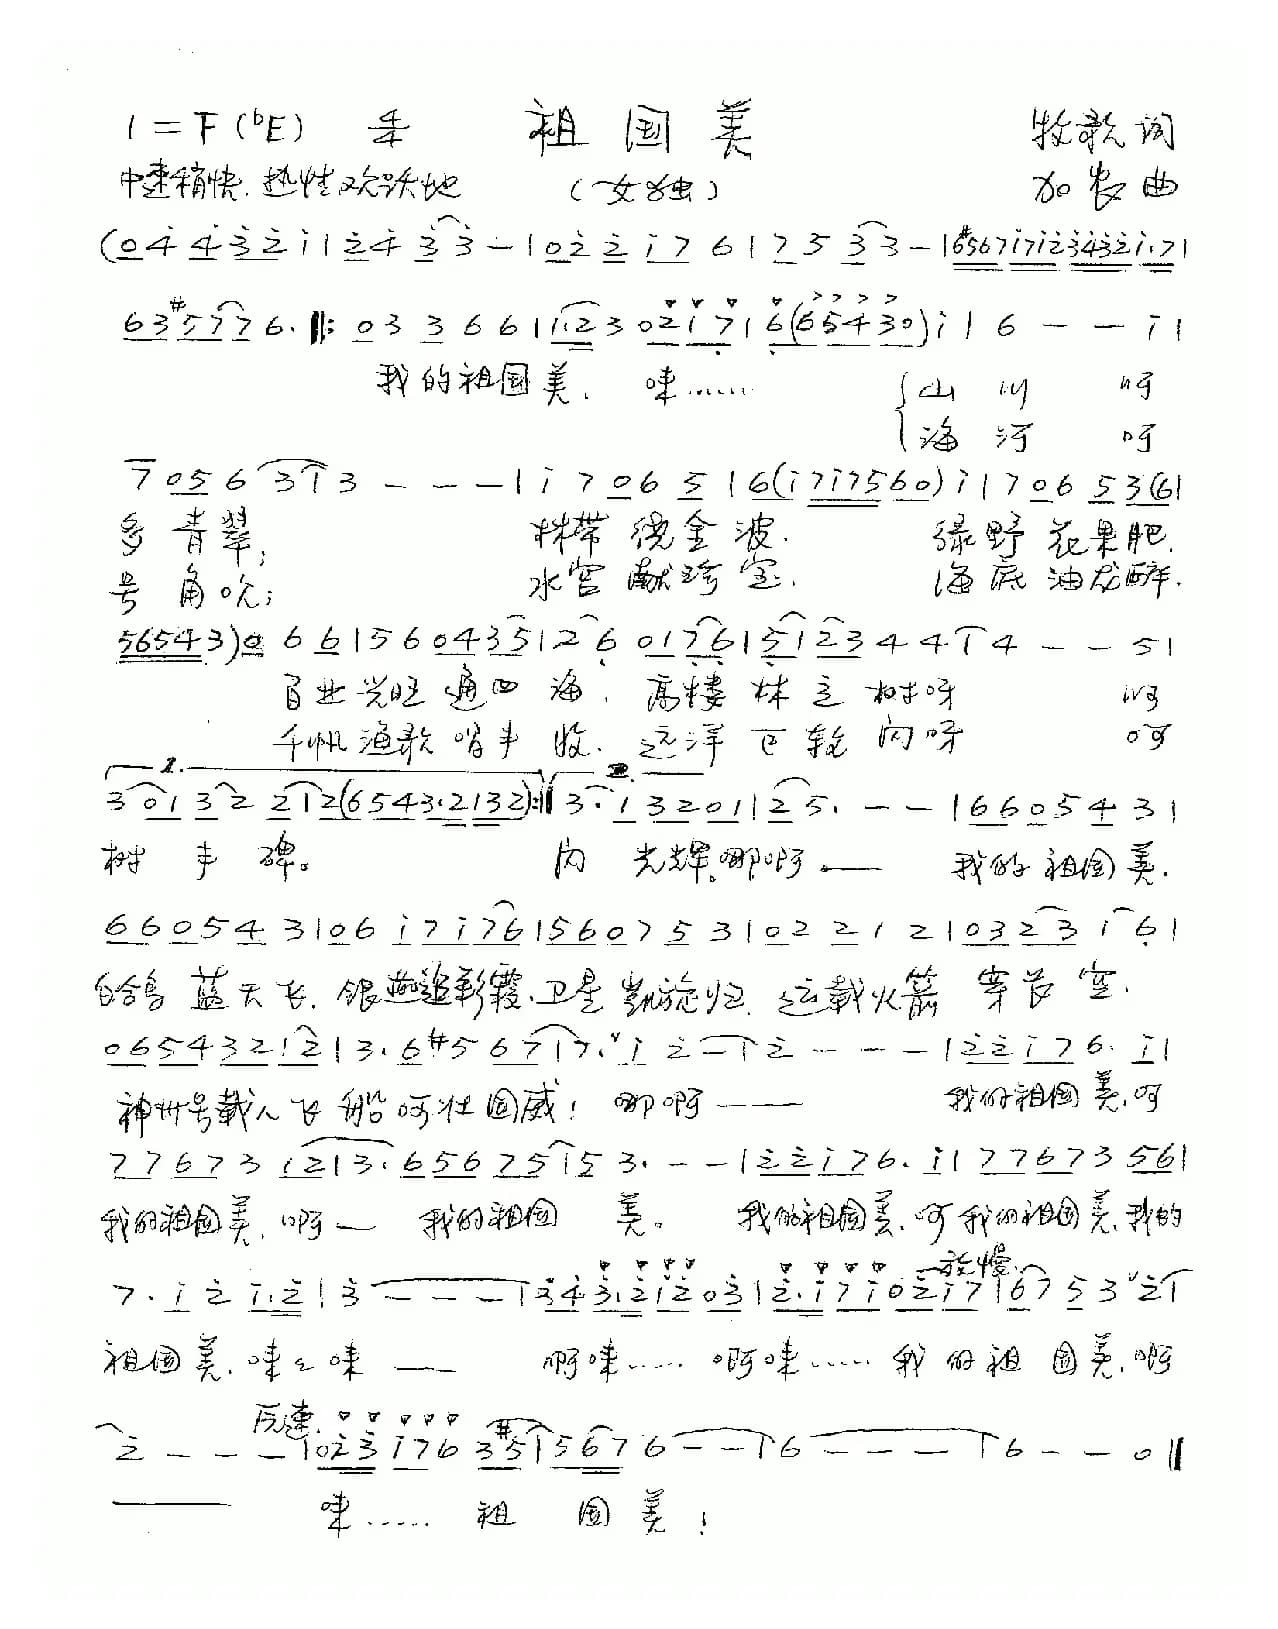 1=F(♭E) 4/4 祖国美 牧歌词
中速稍快.热性欢跃地 (女独) 加农曲
(0 4 4 3 2 i | 2 4 3 3 - | 0 2 2 i 7 6 | 7 5 3 3 - | #6567i7i23432i.7 |
6 3 #5 7 7 6. ‖: 0 3 3 6 6 | i.2 3 0 2 i 7 | 6 (6 5 4 3 0) i | 6 - - i |
我的祖国美. 唻…… 山川呵
海河呵
7 0 5 6 3 | 3 - - - | i 7 0 6 5 | 6 (i 7 i 7 5 6 0) i | 7 0 6 5 3 (6 |
多青翠; 林带绕金波. 绿野花果肥.
号角吹; 水宫献珍宝. 海底油龙醉.
5 6 5 4 3) 0 6 6 | 5 6 0 4 3 5 | 2 6 0 1 7 6 | 5 1 2 3 4 4 | 4 - - 5 |
百业兴旺通四海. 高楼林立树呀 呵
千帆渔歌哨丰收. 远洋巨轮闪呀 呵
1. 2.
3 0 1 3 2 2 | 2 (6 5 4 3. 2 1 3 2) :‖ 3. 1 3 2 0 1 | 2 5. - - | 6 6 0 5 4 3 |
树丰碑。 闪光辉。哪啊。— 我的祖国美.
6 6 0 5 4 3 | 0 6 i 7 i 7 6 | 5 6 0 7 5 3 | 0 2 2 2 1 2 | 0 3 2 3 1 6 |
白鸽鸟蓝天飞. 银燕追彩霞. 卫星凯旋归. 运载火箭穿长空.
0 6 5 4 3 2 1 2 | 3. 6 #5 6 7 | 7. i 2 - | 2 - - - | 2 2 i 7 6. i |
神州号载人飞船呵壮国威! 哪啊—— 我的祖国美.呵
7 7 6 7 3 1 2 | 3. 6 5 6 7 5 | 5 3. - - | 2 2 i 7 6. i | 7 7 6 7 3 5 6 |
我的祖国美. 啊— 我的祖国 美。 我的祖国美.呵我的祖国美.我的
放慢.
7. i 2 i.2 | 3 - - - | 3 4 3. 2 i 2 0 3 | 2. i 7 i 0 2 i 7 | 6 7 5 3 2 |
祖国美.唻唻— 啊唻…… 啊唻…… 我的祖国美.啊
反速.
2 - - - | 0 2 3 i 7 6 3 #5 | 5 6 7 6 - - | 6 - - - | 6 - - 0 ‖
唻…… 祖国美!